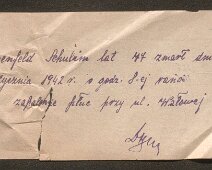 enfeld Schulim lat 44 zmarł dn
tycznia 1942 r. o godz. 8-ej rano
zapalenie płuc przy ul. Wałowej